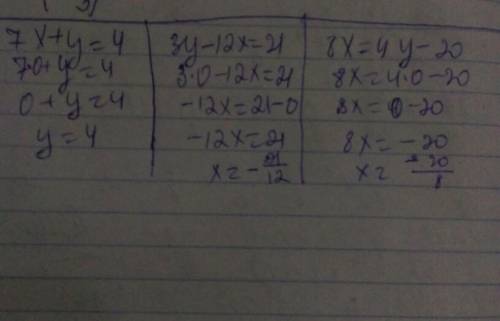 7x+y=4
7·0+y=4
0+y=4
y=4
3y-12x=21
3·0-12x=21
-12x=21-0
-12x=21
x=-21/12
8x=4y-20
8x=4·0-20
8x=0-20
8x=-20
x=-20/8